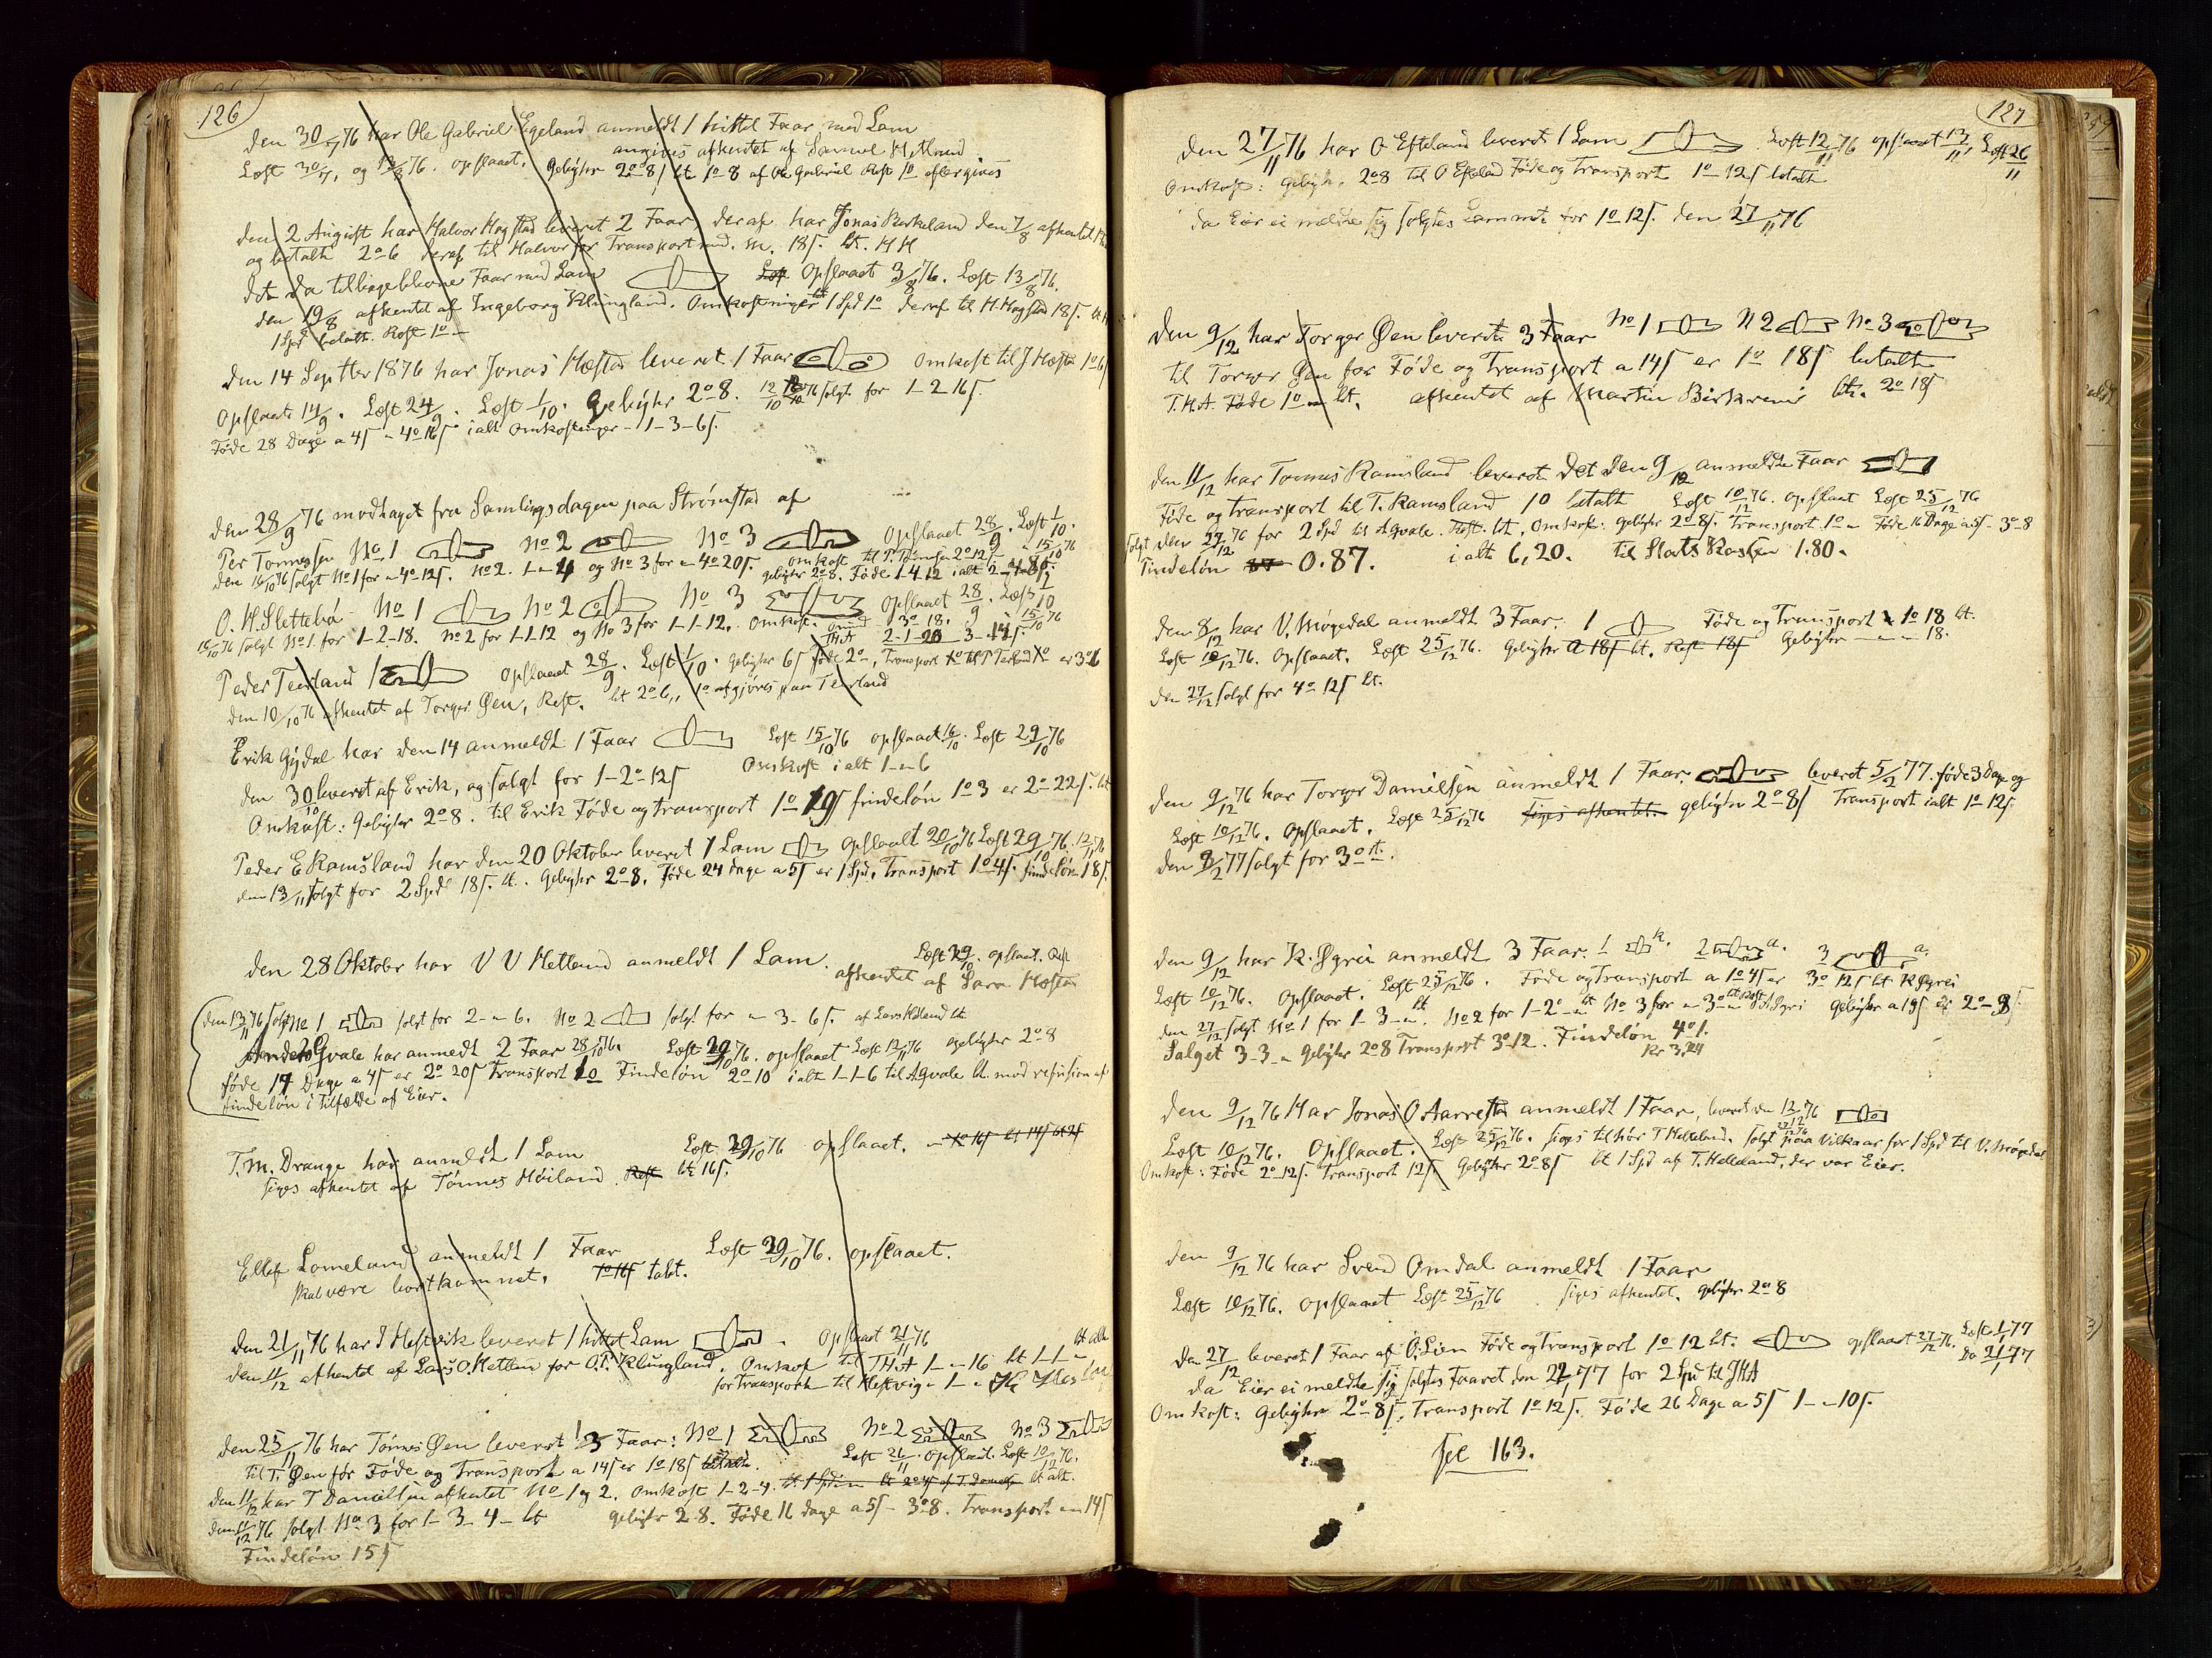 126
den 30/7 76 har Ole Gabriel Egeland anmeldt 1 hittet Faar med Lam
angives afhentet af Samuel Hetland
Læst 30/7, og 13/8 76. opslaaet. Gebyhr 2o 8/ bt 1o 8 af Ole Gabriel Rest 1o eftergives
den 2 August har Halvor Hogstad leveret 2 Faar, deraf har Jonas Birkeland den 7/8 afhentet
og betalt 2o-6 deraf til Halvor for Transport md. m. 18s. bt. HH
det da tilbageblevne Faar med Lam Opslaaet 3/8 76. Læst 13/8 76.
den 19/8 afhentet af Ingeborg Klungland. Omkostninger 1 Spd 1o deraf til H. Hogstad 18s.
1 Spd betalt. Rest 1o -
den 14 Septber 1876 har Jonas Mæstad leveret 1 Faar Omkost til J Mæstad
Opslaaet 14/9. Læst 24/9. Læst 1/10. Gebyhr 2o 8. solgt for 1-2-16s.
Føde 28 Dage a 4s - 4o 16s ialt Omkostninger - 1-3-6s.
den 28/9 76 modtaget fra Samlingsdagen paa Strømstad af
Per Tonnessen No 1 No 2 No 3 Opslaaet 28/9. Læst 1/10.
den 16/10 76 solgt No 1 for - 4o-12s. No 2. 1-"-4 og No 3 for - 4o 20s. omkost
gebyhr 2o 8. Føde 1-4-12 ialt
O. H. Slettebø No 1 No 2 No 3 Opslaaet 28/9. Læst 1/10
16/10 76 solgt No 1. for 1-2-18. No 2 for 1-1-12 og No 3 for 1-1-12. Omkost.
Peder Terland 1 Opslaaet 28/9. Læst 1/10. gebyhr 6s føde 2o-, Transport
den 10/10 76 afhentet af Torger Øen, Rest. bt 2o 6,, 1o afgjøres paa Terland
Erik Gydal har den 14 anmeldt 1 Faar Læst 15/10 76 opslaaet 16/10. Læst 29/10 76
den 30/10 leveret af Erik, og solgt for 1-2o-12s Omkost ialt 1-"-6
Omkost: Gebyhr 2o 8. til Erik Føde og transport 1o 19s findeløn 1o 3 er 2o-22s. bt
Peder E Ramsland har den 20 Oktober leveret 1 Lam opslaaet 20/10 76 Læst 29/10 76. 12/11 76
den 13/11 solgt for 2 Spd 18s. bt. Gebyhr 2o 8. Føde 24 dage a 5s er 1 Spd. Transport 1o 4s. findeløn 18s.
den 28 Oktober har V V Hetland anmeldt 1 Lam. Læst 29/10. opslaaet.
afhentet af Lars Mæstad
den 13/11 76 solgt No 1 solgt for 2-"-6. No 2 solgt for "-3-6s. af Lars Hetland bt
Anders Qvale har anmeldt 2 Faar 28/10 76. Læst 29/10 76. opslaaet Læst 12/11 76 gebyhr 2o 8
føde 14 Dage a 4s er 2o 20s Transport 1o Findeløn 2o 10 ialt 1-1-6 til A Qvale bt. mod refusion af
findeløn i tilfælde af Eier.
T. M. Drange har anmeldt 1 Lam Læst 29/10 76 opslaaet.
siges afhentet af Tønnes Høiland. Rest bt 16s.
Ellef Lomeland anmeldt 1 Faar Læst 29/10 76. opslaaet.
skal være bortkommet. tabt.
den 21/11 76 har T Hestvik leveret 1 hittet Lam Opslaaet 21/11 76
den 11/12 afhentet af Lars O. Hetland for O. T. Klungland. Omkost til THA 1-"-16 bt 1-1-"
for Transport til Hestvig
den 25/11 76 har Tønnes Øen leveret 3 Faar: No 1 No 2 No 3
til T. Øen for Føde og Transport a 14s er 1o 18s betalt. Læst 26/11. Opslaaet. Læst 10/12 76.
den 11/12 har T Danielsen afhentet No 1 og 2. Omkost 1-2-4. bt alt.
den 11/12 76 solgt No 3 for 1-3-4- bt gebyhr 2-8. Føde 16 dage a 5s - 3o 8. Transport - 14s
Findeløn 15s
127
den 27/11 76 har O Efteland leveret 1 Lam Læst 12/11 76 opslaaet 13/11, Læst 26/11
Omkost: Gebyhr. 2o 8 til O Efteland Føde og Transport 1o-12s betalt
da Eier ei meldte sig solgtes Lammet for 1o 12s. den 27/11 76
den 9/12 har Torger Øen leveret 3 Faar No 1 N 2 No 3
til Torger Øen for Føde og Transport a 14s er 1o 18s betalt
T.H.A. Føde 1o - bt. afhentet af Martin Birkrem bt. 2o 18s
den 11/12 har Tønnes Ramsland leveret det den 9/12 anmeldte Faar
Føde og transport til T. Ramsland 1o betalt Læst 10/12 76. opslaaet Læst 25/12 76
solgt den 27/12 76 for 2 Spd til A Qvale. Rest. bt. Omkost: Gebyhr 2o-8s. Transport. 1o - Føde 16 Dage a 5s - 3o-8
Findeløn 0.87. ialt 6,20. til Stats Kassen 1.80.
den 8/12 har V. Møgedal anmeldt 3 Faar. 1 Føde og Transport 1o 18 bt.
Læst 10/12 76. Opslaaet. Læst 25/12 76. Gebyhr a 18s bt. Rest 18s Gebyhr - - - 18.
den 27/12 solgt for 4o 12s bt.
den 9/12 76 har Torger Danielsen anmeldt 1 Faar. leveret 5/2 77. føde 3 Dage og
Læst 10/12 76. Opslaaet. Læst 25/12 76 siges afhentet. gebyhr 2o 8s Transport ialt 1o 12s.
den 8/2 77 solgt for 3o rt.
den 9/12 har K. Øgrei anmeldt 3 Faar. 1 2 3
Læst 10/12 76. Opslaaet. Læst 25/12 76. Føde og Transport a 1o 4s er 3o 12s bt K Øgrei
den 27/12 solgt No 1 for 1-3-" bt. No 2 for 1-2o-" bt No 3 for "-3o-" Gebyhr a 19s er 2o-9s
Salget 3-3-" Gebyhr 2o 8 Transport 3o 12. Findeløn 4o 1.
Kr 3,24
den 9/12 76 Har Jonas O Aarrestad anmeldt 1 Faar, leveret den 12/12 76
Læst 10/12 76. Opslaaet. Læst 25/12 76. siges tilhør T Helleland. solgt paa Vilkaar for 1 Spd til V. Møgedal
Omkost: Føde 2o-12s. Transport 12s Gebyhr 2o-8s bt 1 Spd af T. Helleland, der var Eier.
den 9/12 76 har Svend Omdal anmeldt 1 Faar
Læst 10/12 76. Opslaaet Læst 25/12 76 siges afhentet. gebyhr 2o 8
Den 27/12 leveret 1 Faar af O. Lien Føde og Transport 1o 12 bt. opslaaet 27/12 76. Læst 1/1 77
Do 21/1 77
da Eier ei meldte sig solgtes Faaret den 22/1 77 for 2 Spd til JHA
Omkost: Gebyhr 2o-8s. Transport 1o 12s. Føde 26 Dage a 5s 1-"-10s.
see 163.